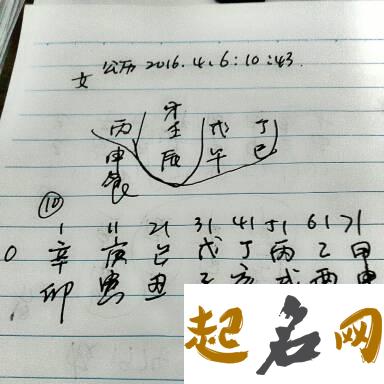 女 公历 2016.4.6:10:43.
丙 壬 戊 丁
申 辰 午 巳
⑩ 1 11 21 31 41 51 61 71
0 辛 庚 己 戊 丁 丙 乙 甲
卯 寅 丑 亥 戌 酉 申
起名网